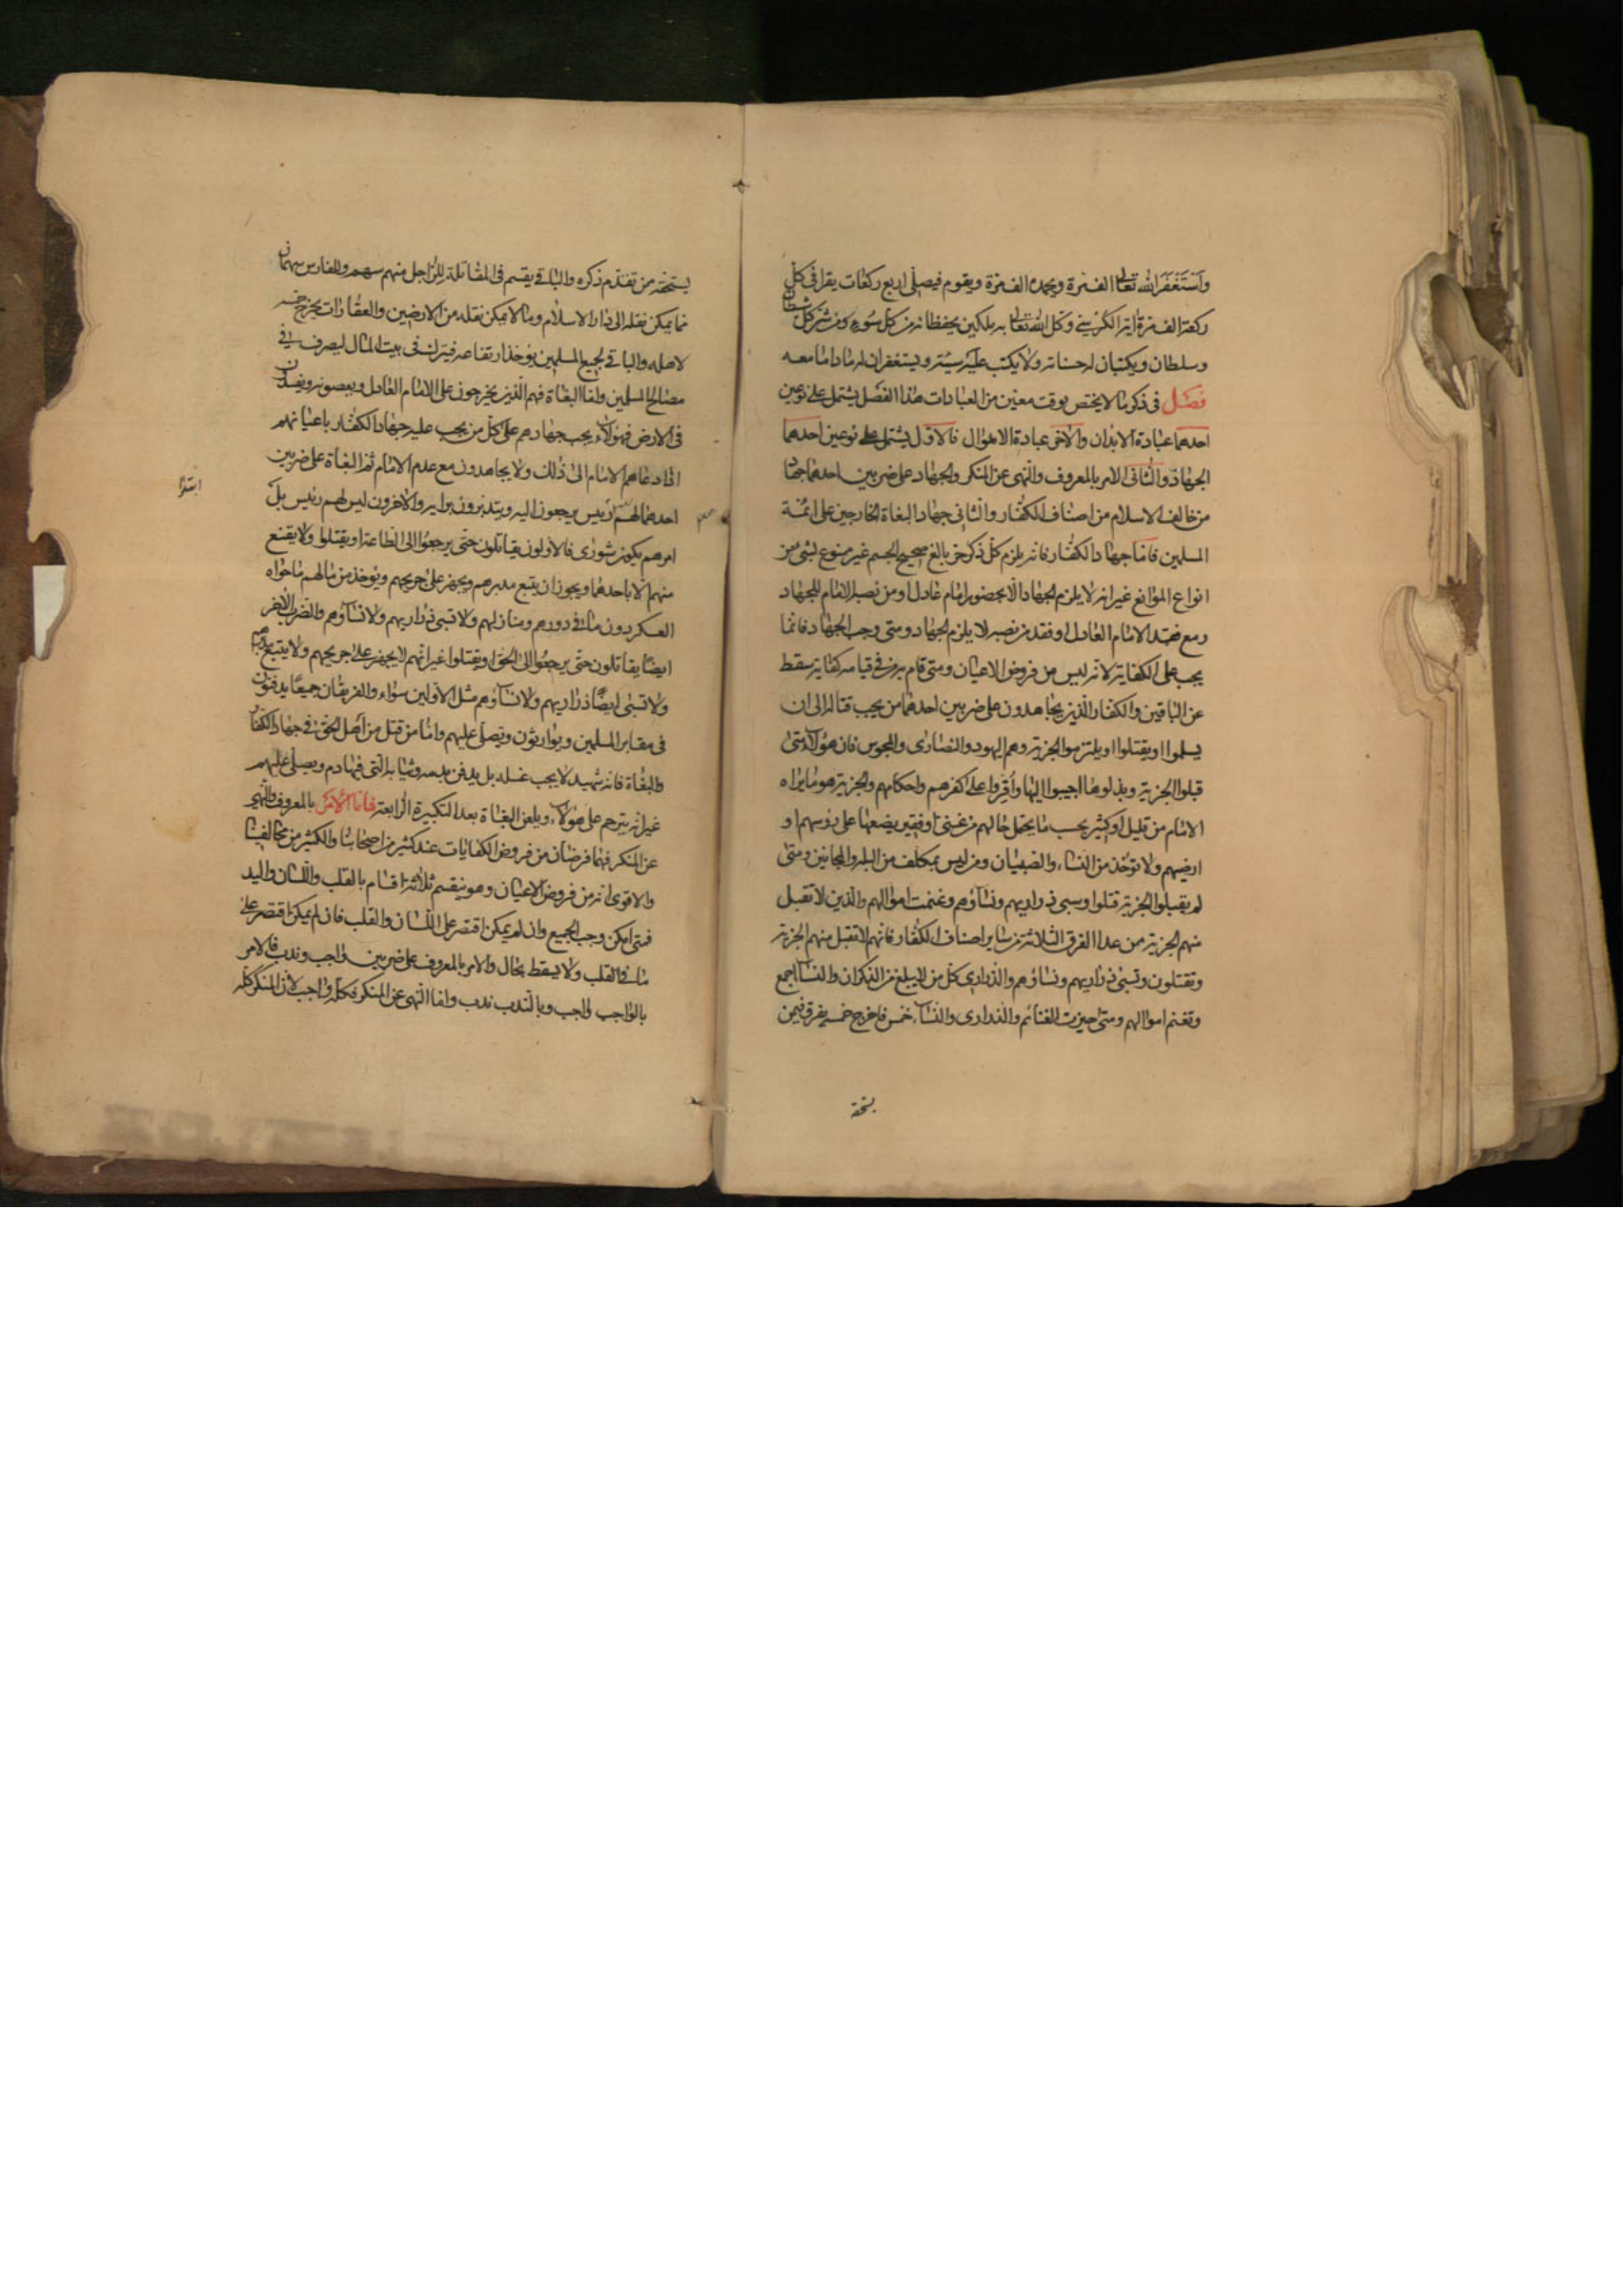 واستغفر الله تعالى الف مرة ويحمده الف مرة ويقوم فيصلي اربع ركعات يقرأ في كل
ركعة الف مرة اية الكرسي وكل الله تعالى به ملكين يحفظانه من كل سوء ومن شر كل شيطان
وسلطان ويكتبان له حسناته ولا يكتب عليه سيئة ويستغفران له ما داما معه
فصل في ذكر ما لا يختص بوقت معين من العبادات هذا الفصل يشتمل على نوعين
احدهما عبادة الابدان والاخر عبادة الاموال فالاول يشتمل على نوعين احدهما
الجهاد والثاني الامر بالمعروف والنهي عن المنكر والجهاد على ضربين احدهما جهاد
من خالف الاسلام من اصناف الكفار والثاني جهاد البغاة الخارجين على ائمة
المسلمين فاما جهاد الكفار فانه يلزم كل ذكر حر بالغ صحيح الجسم غير ممنوع بشئ من
انواع الموانع غير انه لا يلزم الجهاد الا بحضور امام عادل او من نصبه الامام للجهاد
ومع فقد الامام العادل او فقد من نصبه لا يلزم الجهاد ومتى وجب الجهاد فانما
يجب على الكفاية لانه ليس من فروض الاعيان ومتى قام به من في قيامه كفاية سقط
عن الباقين والكفار الذين يجاهدون على ضربين احدهما من يجب قتاله الى ان
يسلموا او يقتلوا او يلتزموا الجزية وهم اليهود والنصارى والمجوس فان هؤلاء متى
قبلوا الجزية وبذلوها اجيبوا اليها واقروا على كفرهم واحكامهم والجزية هو ما يراه
الامام من قليل او كثير بحسب ما يحتمل حالهم من غنى او فقير يضعها على رؤسهم او
ارضيهم ولا تؤخذ من النساء والصبيان ومن ليس بمكلف من البله والمجانين ومتى
لم يقبلوا الجزية قتلوا وسبي ذراريهم ونساؤهم وغنمت اموالهم والذين لا تقبل
منهم الجزية من عدا الفرق الثلاثة من ساير اصناف الكفار فانهم لا تقبل منهم الجزية
وتقتلون وتسبى ذراريهم ونساؤهم والذراري كل من لا يبلغ من الذكران والنساء اجمع
وتغنم اموالهم ومتى حيزت الغنائم والذراري والنساء خمس فاخرج خمسه يفرق فيمن
يستحقه
يستحقه من تقدم ذكره والباقي يقسم في المقاتلة للراجل منهم سهم وللفارس سهمان
مما يمكن نقله الى دار الاسلام وما لا يمكن نقله من الارضين والعقارات يخرج خمسه
لاهله والباقي لجميع المسلمين يؤخذ ارتفاعه فيترك في بيت المال ليصرف في
مصالح المسلمين واما البغاة فهم الذين يخرجون على الامام العادل ويعصونه ويفسدون
في الارض فهؤلاء يجب جهادهم على كل من يجب عليه جهاد الكفار باعيانهم
اذا دعاهم الامام الى ذلك ولا يجاهدون مع عدم الامام ثم البغاة على ضربين
ابتدا
احدهما لهم رئيس يرجعون اليه ويتدبرون برايه والاخرون ليس لهم رئيس بل
امرهم يكون شورى فالاولون يقاتلون حتى يرجعوا الى الطاعة او يقتلوا ولا يقنع
منهم الا باحدهما ويجوز ان يتبع مدبرهم ويجهز على جريحهم ويؤخذ من مالهم ما حواه
العسكر دون ما في دورهم ومنازلهم ولا تسبى ذراريهم ولا نساؤهم والضرب الاخر
ايضا يقاتلون حتى يرجعوا الى الحق او يقتلوا غير انهم لا يجهز على جريحهم ولا يتبع مدبرهم
ولا تسبى ايضا ذراريهم ولا نساؤهم مثل الاولين سواء والفريقان جميعا يدفنون
في مقابر المسلمين ويوارثون ويصلى عليهم واما من قتل من اهل الحق في جهاد الكفار
والبغاة فانه شهيد لا يجب غسله بل يدفن بدمه وثيابه التي فيها دم ويصلى عليهم
غير انه يترحم على هؤلاء ويلعن البغاة بعد التكبيرة الرابعة فاما الامر بالمعروف والنهي
عن المنكر فهما فرضان من فروض الكفايات عند كثير من اصحابنا والكثير من مخالفينا
والاقوى انه من فروض الاعيان وهو ينقسم ثلاثة اقسام بالقلب واللسان واليد
فمتى امكن وجب الجميع وان لم يمكن اقتصر على اللسان والقلب فان لم يمكن اقتصر على
ما في القلب ولا يسقط بحال والامر بالمعروف على ضربين واجب وندب فالامر
بالواجب واجب وبالندب ندب واما النهي عن المنكر فكله واجب لان المنكر كله